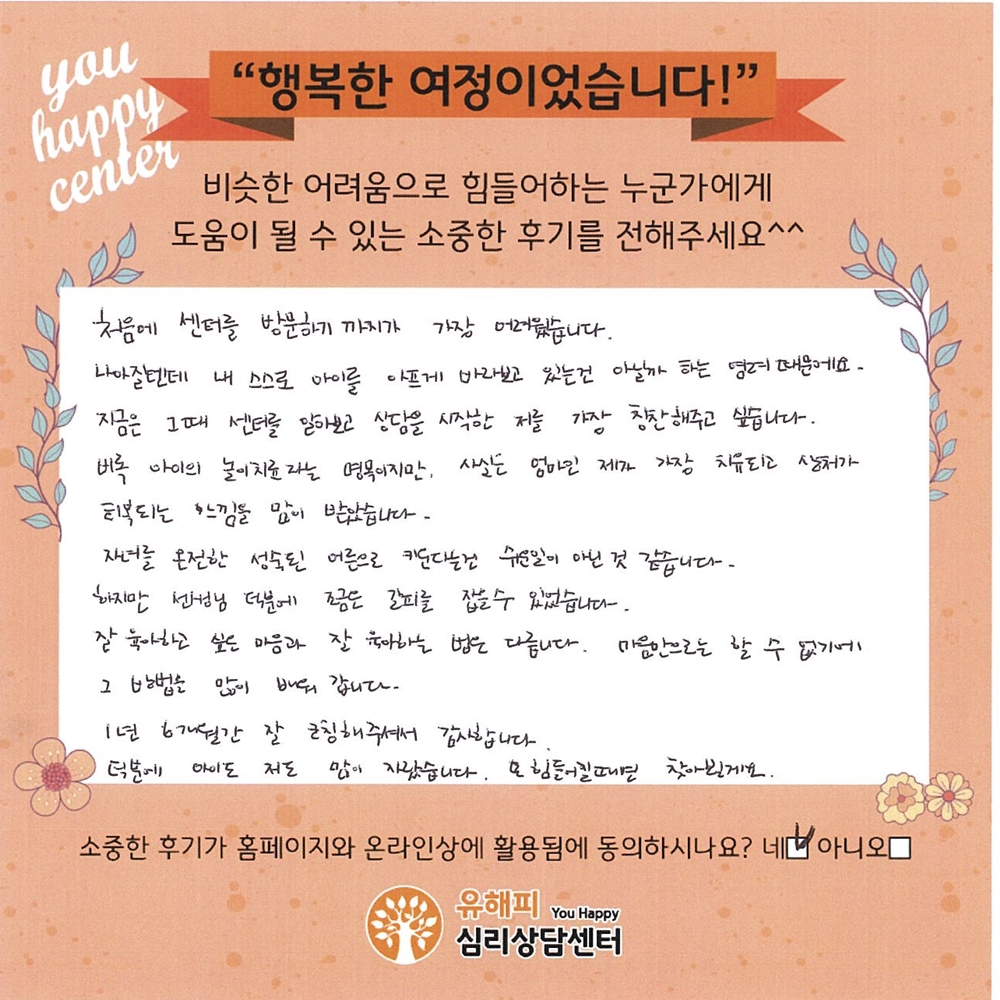 you
happy
center
“행복한 여정이었습니다!”
비슷한 어려움으로 힘들어하는 누군가에게
도움이 될 수 있는 소중한 후기를 전해주세요^^
처음에 센터를 방문하기 까지가 가장 어려웠습니다.
나아질텐데 내 스스로 아이를 아프게 바라보고 있는건 아닐까 하는 염려 때문에요.
지금은 그때 센터를 알아보고 상담을 시작한 저를 가장 칭찬해주고 싶습니다.
비록 아이의 놀이치료라는 명목이지만, 사실은 엄마인 제가 가장 치유되고 상처가
회복되는 느낌을 많이 받았습니다.
자녀를 온전한 성숙된 어른으로 키운다는건 쉬운일이 아닌 것 같습니다.
하지만 선생님 덕분에 조금은 갈피를 잡을 수 있었습니다.
잘 육아하고 싶은 마음과 잘 육아하는 법은 다릅니다. 마음만으로는 할 수 없기에
그 방법을 많이 배워 갑니다.
1년 6개월간 잘 코칭해주셔서 감사합니다.
덕분에 아이도 저도 많이 자랐습니다. 또 힘들어질때면 찾아뵐게요.
소중한 후기가 홈페이지와 온라인상에 활용됨에 동의하시나요? 네 아니오
유해피 You Happy
심리상담센터